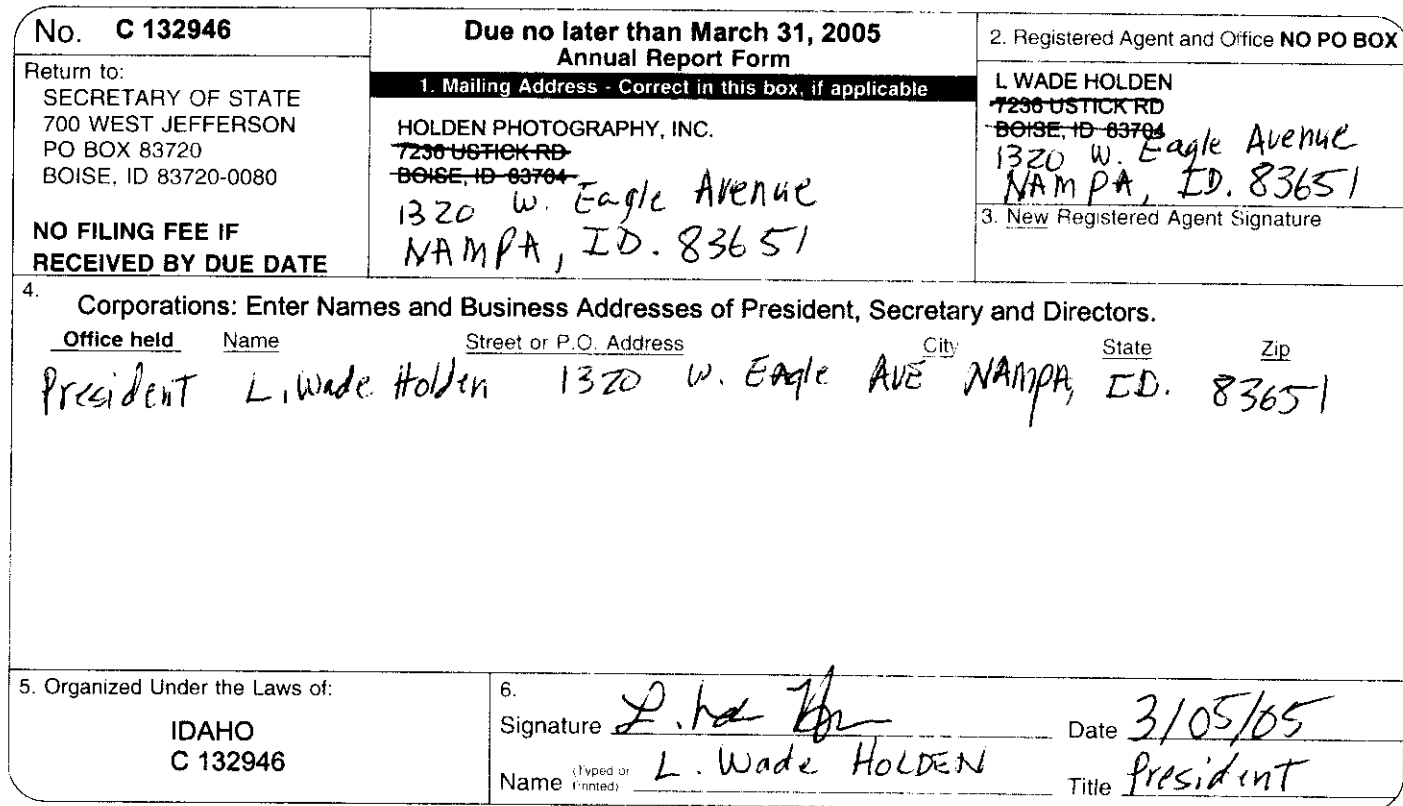 No. C 132946
Return to:
SECRETARY OF STATE
700 WEST JEFFERSON
PO BOX 83720
BOISE, ID 83720-0080
NO FILING FEE IF
RECEIVED BY DUE DATE
Due no later than March 31, 2005
Annual Report Form
1. Mailing Address - Correct in this box, if applicable
HOLDEN PHOTOGRAPHY, INC.
7236 USTICK RD
BOISE, ID 83704
1320 W. Eagle Avenue
NAMPA, ID. 83651
2. Registered Agent and Office NO PO BOX
L WADE HOLDEN
7236 USTICK RD
BOISE, ID 83704
1320 W. Eagle Avenue
NAMPA, ID. 83651
3. New Registered Agent Signature
4.
Corporations: Enter Names and Business Addresses of President, Secretary and Directors.
Office held Name Street or P.O. Address City State Zip
President L. Wade Holden 1320 W. EAgle AVE NAMPA, ID. 83651
5. Organized Under the Laws of:
IDAHO
C 132946
6.
Signature L. Wade Holden Date 3/05/05
Name (Typed or Printed) L. Wade HOLDEN Title President